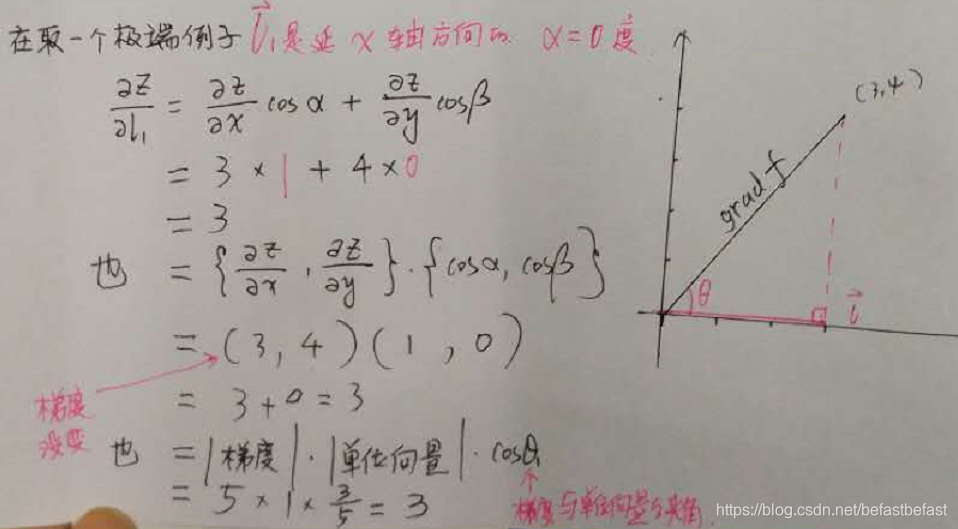 在取一个极端例子 l⃗₁是延 x 轴方向的 α=0度
∂z/∂l₁ = ∂z/∂x cosα + ∂z/∂y cosβ
= 3 × 1 + 4 × 0
= 3
也 = {∂z/∂x , ∂z/∂y} · {cosα, cosβ}
= (3, 4)(1, 0)
= 3 + 0 = 3
梯度
没变
也 = |梯度| · |单位向量| · cosθ₁
= 5 × 1 × 3/5 = 3
梯度与单位向量夹角
(3,4)
grad f
θ
l⃗
https://blog.csdn.net/befastbefast